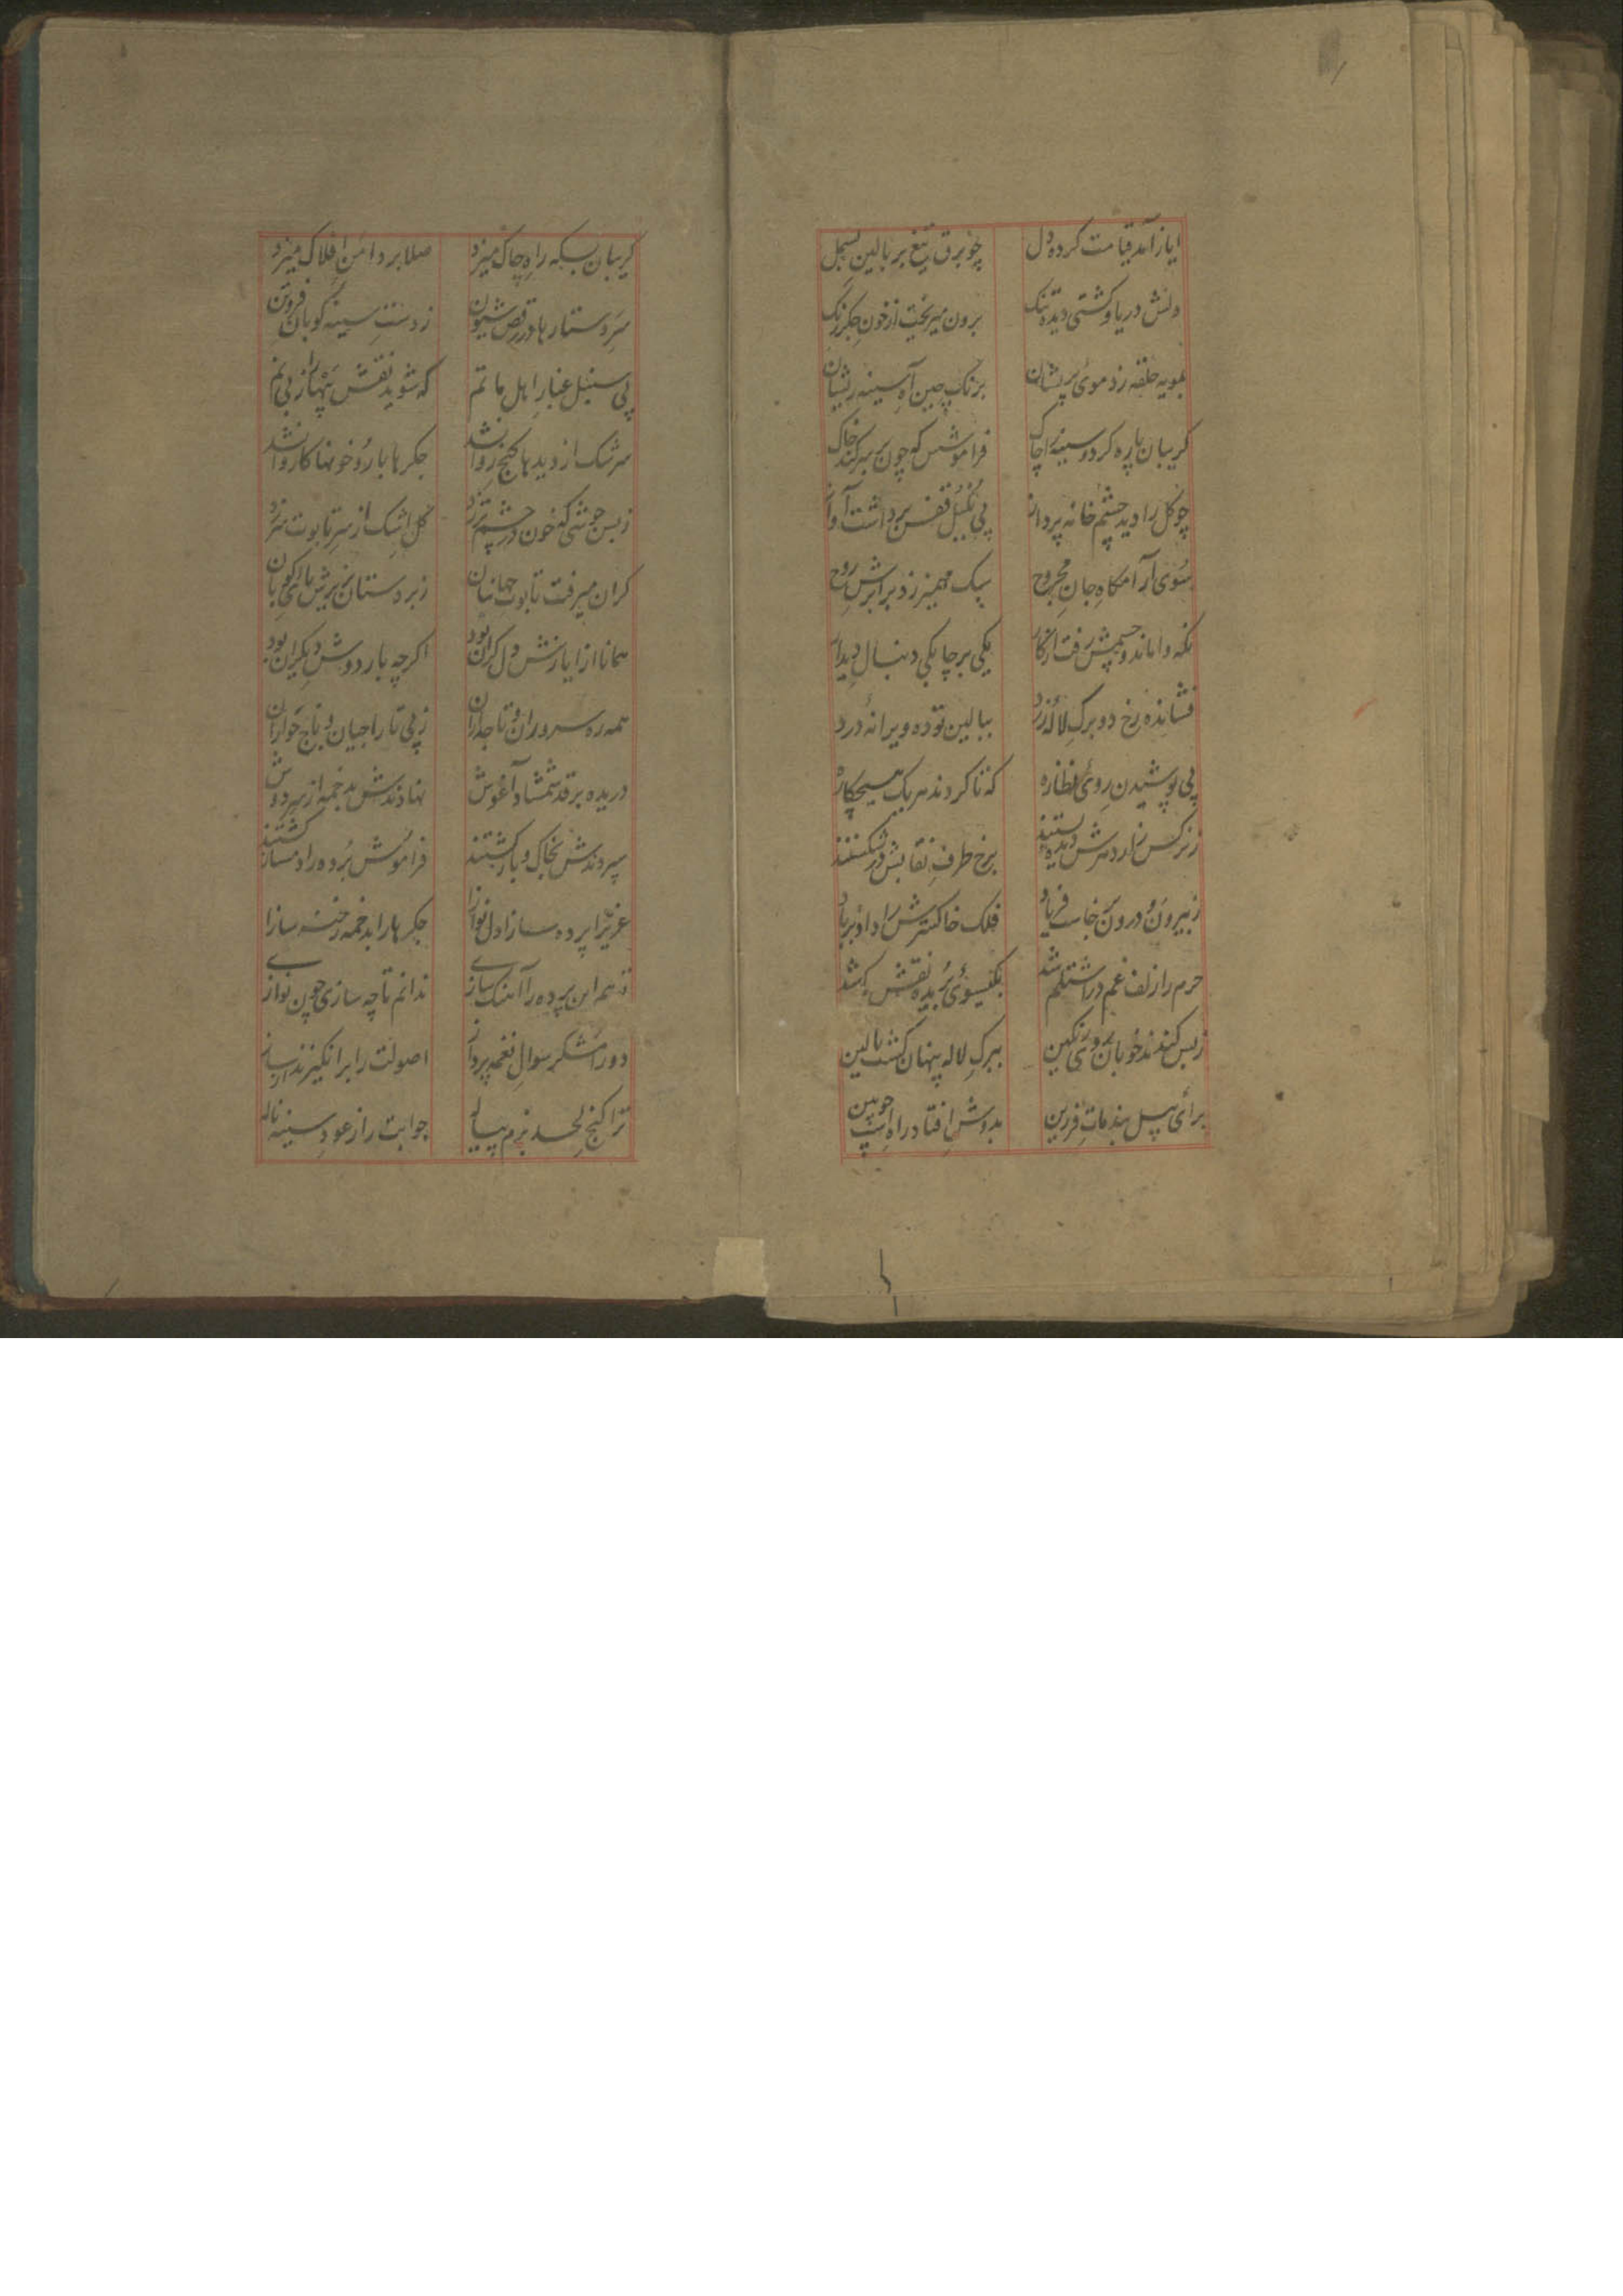 ایاز آمد قیامت کرده دل چو برق تیغ بر بالین بسمل
دلش دریا و کشتی دیده تنک برون میریخت از خون جکر رنک
بمویه حلقه زد موی پریشان برنک چین آه سینه ریشان
کریبان پاره کرد و سینه را چاک فراموشش که چون بر سر کند خاک
چو کل را دید چشم خانه پرداز پی بلبل قفس برداشت آواز
بسوی آرامکاه جان مجروح سبک مهمیز زد بر ابرش روح
نکه واماند و چشمش رفت از کار یکی بر جا یکی دنبال دیدار
فشانده رخ دو برک لاله زرد ببالین توده ویرانه درد
پی پوشیدن روی نظاره که تا کردند هر یک
نرکس زار در سرش دیده بستند برخ طرف نقابش در شکستند
ز بیرون و درون برخاست فریاد فلک خاکسترش را داد بر باد
حرم را زلف غم در اشتلم شد بکیسوی بریده نقش شد
ز بس کندند خوبان روی رنکین ببرک لاله پنهان کشت بالین
برای پیل بند مات فرزین بدوش افتاد راه اسپ چوبین
کریبان بسکه راه چاک میزد صلا بر دامن افلاک میزد
سر و ستارها در رقص شیون ز دست سینه کوبان
پی سنبل غبار اهل ماتم که شوید نقش پنهان از پی نم
سرشک از دیدها کنج روان شد جکرها بار و خونها کاروان شد
ز بس جوشی که خون در چشم تر زد کل اشک از سر تابوت سر زد
کران میرفت تابوت جهانبان زبردستان بزیرش پای کوبان
همانا از ایازش دل کران بود اکرچه بار دوش دیکران بود
همه ره سروران و تاجداران ز پی تاراجیان و باج خواران
دریده بر قد شمشاد آغوش نهادندش بدخمه از سر دوش
سپردندش بخاک و باز کشتند فراموش برده را دمساز کشتند
عزیزا پرده سازا دل نوازا جکرها را بدخمه رخنه سازا
ز هم این پرده را آهنک سازی ندانم تا چه سازی چون نوازی
دو رامشکر سوال نغمه پرداز اصولت را برانکیزند از ساز
ترا کنج لحد بزم پیاله جوابت را ز عود سینه ناله